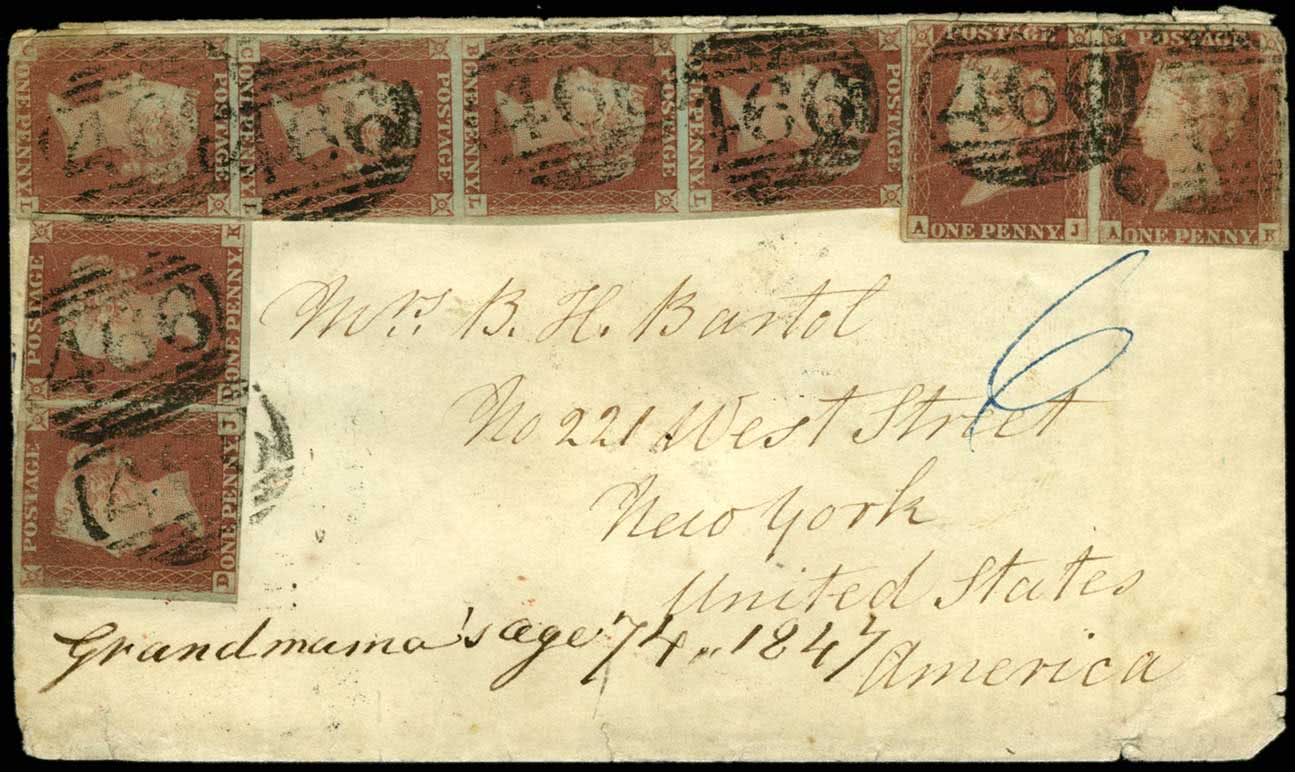 ONE PENNY POSTAGE
ONE PENNY POSTAGE
ONE PENNY POSTAGE
PENNY POSTAGE
POSTAGE
A ONE PENNY J
POSTAGE
A ONE PENNY K
466
466
466
POSTAGE
D ONE PENNY K
466
POSTAGE
D ONE PENNY J
Mrs. B. H. Bartol
6
No 221 West Street
New York
United States
America
Grandmama's age 74 .. 1847